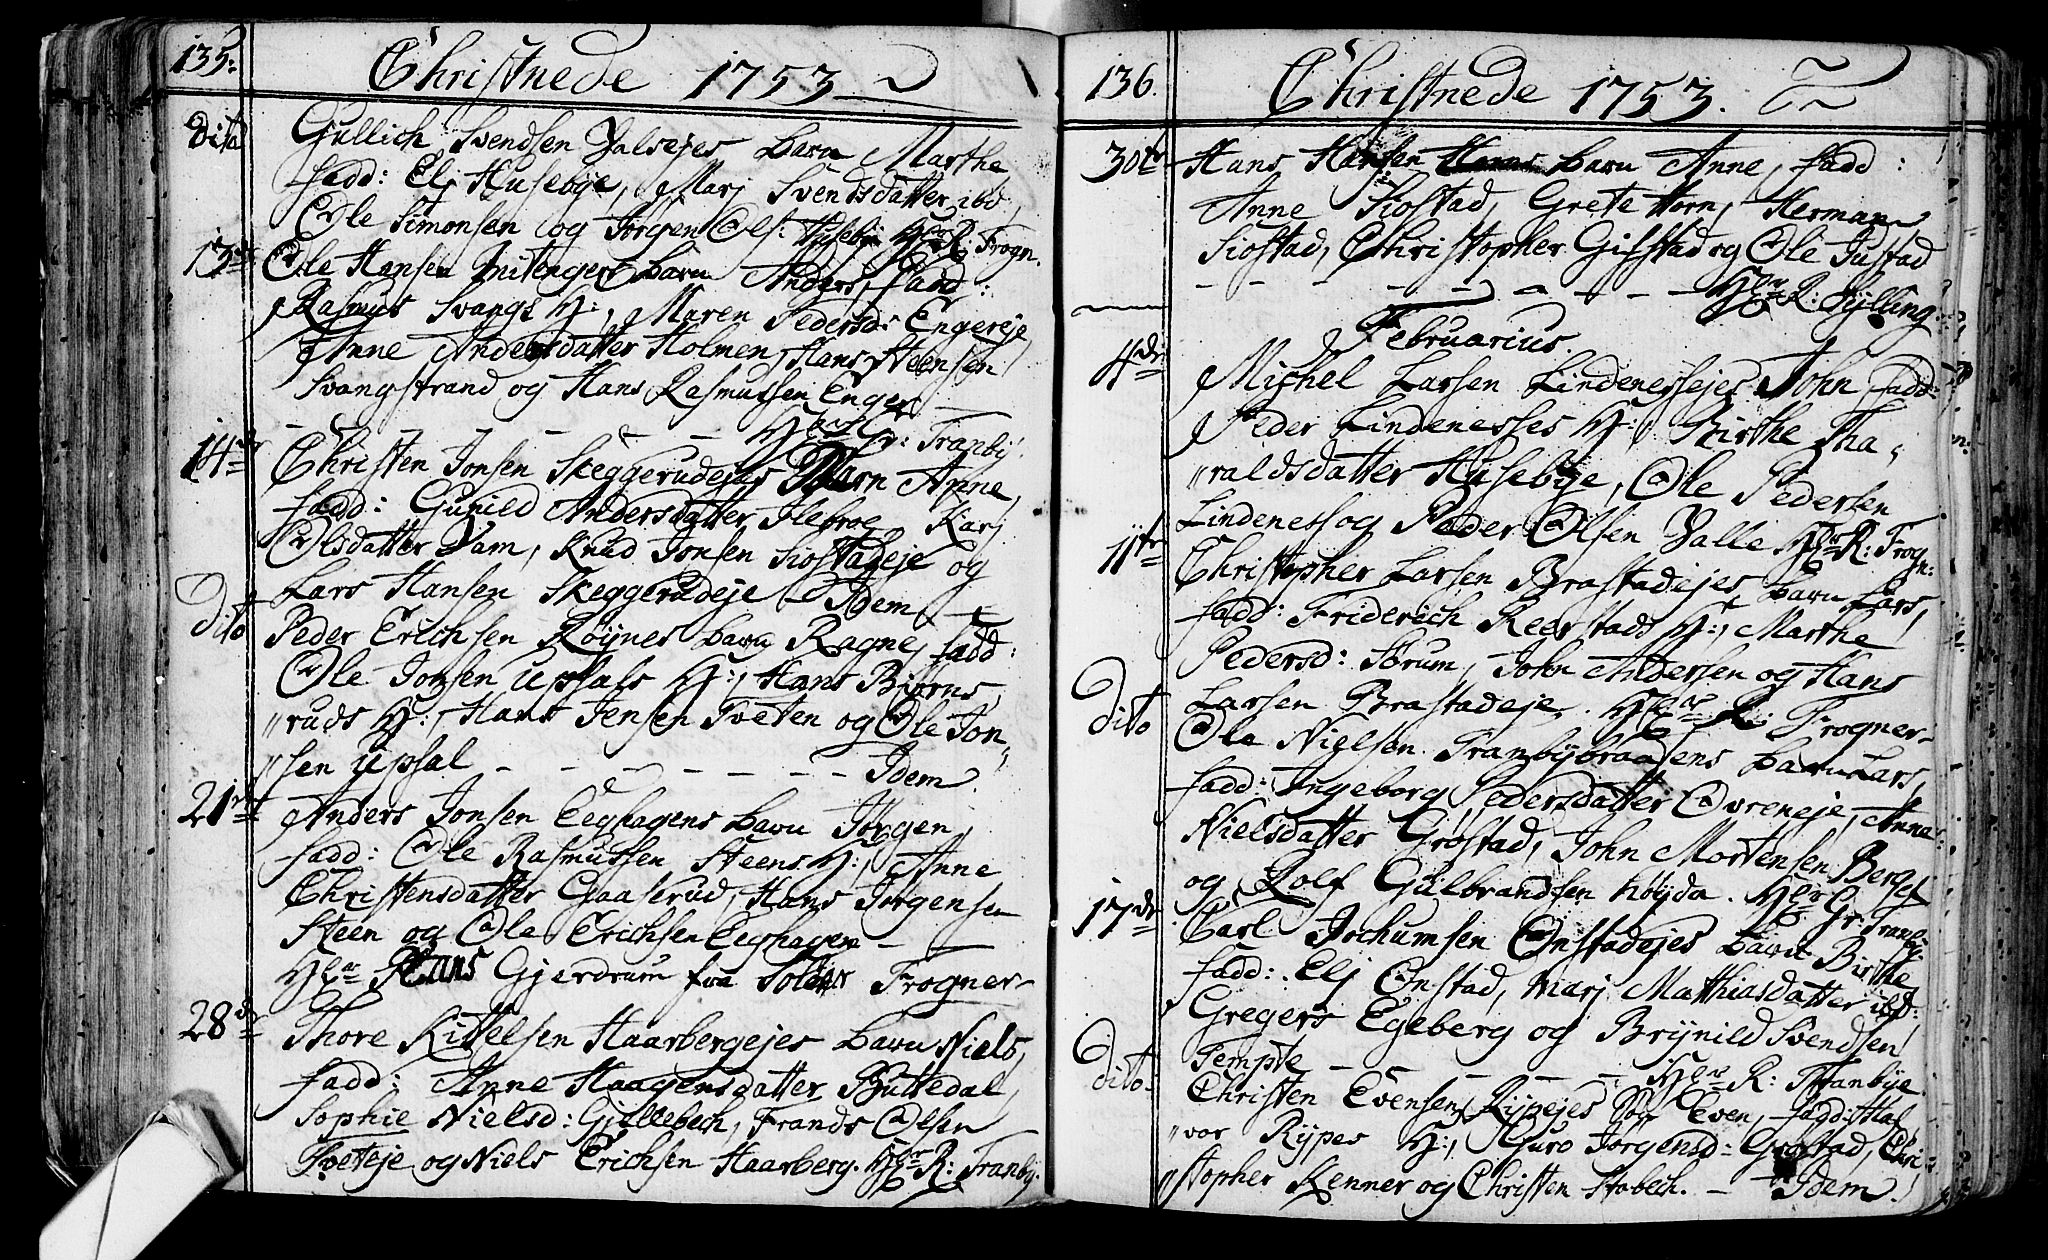 135. Christnede 1753
dito Gullich Svendsen Valsejes barn Marthe
fadd: Elj Husebye, Marj Svendsdatter ibd,
Ole Simonsen og Jørgen Ols: Husebÿe Hr R: Frogn.
13de Ole Hansen barn Anders, fadd:
Rasmus Svangs H:, Maren Pedersd: Engereje
Anne Andersdatter Holmen, Hans Steensen
Svangstrand og Hans Rasmussen Enger
Gr: Tranby.
14de Christen Jonsen Skeggerudejes Barn Anne,
fadd: Gunild Andersdatter Ilebroe, Karj
Olsdatter Dam, Knud Jonsen Siostadeje og
Lars Hansen Skeggerudeje Idem
dito Peder Erichsen Røÿnes barn Ragne, fadd:
Ole Jonsen Upsals H:, Hans Biørns
"ruds H:, Hans Jensen Tveten og Ole Jon"
"sen Upsal - - - - - - Idem.
21de Anders Jonsen Eeghagens barn Jørgen,
fadd: Ole Rasmussen Steens H:, Anne
Christensdatter Gaaserud, Hans Jørgensen
Steen og Ole Erichsen Eeghagen -
Hans Gjerdrum fra Frogner-
28de Thore Kittelsen Haarbergejes barn Niels,
fadd: Anne Haagensdatter Buttedal,
Sophie Nielsd: Gjellebech, Frands Olsen
Tveteje og Niels Erichsen Haarberg. R: Tranby.
136. Christnede 1753.
30te Hans Hansen barn Anne, fadd:
Anne Siostad, Grete Horn, Herman
Siostad, Christopher Gilstad og Ole Justad
- - - - - - - - R: Sylling
Februarius
4de Michel Larsen Lindenessejes John fadd:
Peder Lindenesses H:, Birthe Tha"
"raldsdatter Husebye, Ole Pedersen
Lindeness og Peder Olsen Valle R: Frogn:
11te Christopher Larsen Brastadejes barn Lars,
fadd: Friderich Reerstads H:, Marthe
Pedersd: Sørum, John Andersen og Hans
Larsen Brastadeje. R: Frogner-
dito Ole Nielsen Tranbybraadens barn Lars,
fadd: Ingeborg Pedersdatter Ovreneje, Anne
Nielsdatter Grøstad, John Mortensen Berg
og Rolf Gulbrandsen høyda. Gr: Tranby.
17de Carl Jochumsen Onstadejes barn Birthe
fadd: Elj Onstad, Marj Mathiasdatter ibd:
Gregers Egeberg og Brÿnild Svendsen
Tempte - - - - - R: Tranbye.
dito Christen Evensen Rÿpejes Søn Even, fadd: Hal
"vor Rÿpes H:, Guro Jørgensd: Grøstad, Chri"
"stopher Kenner og Christen Stabech. - Idem.